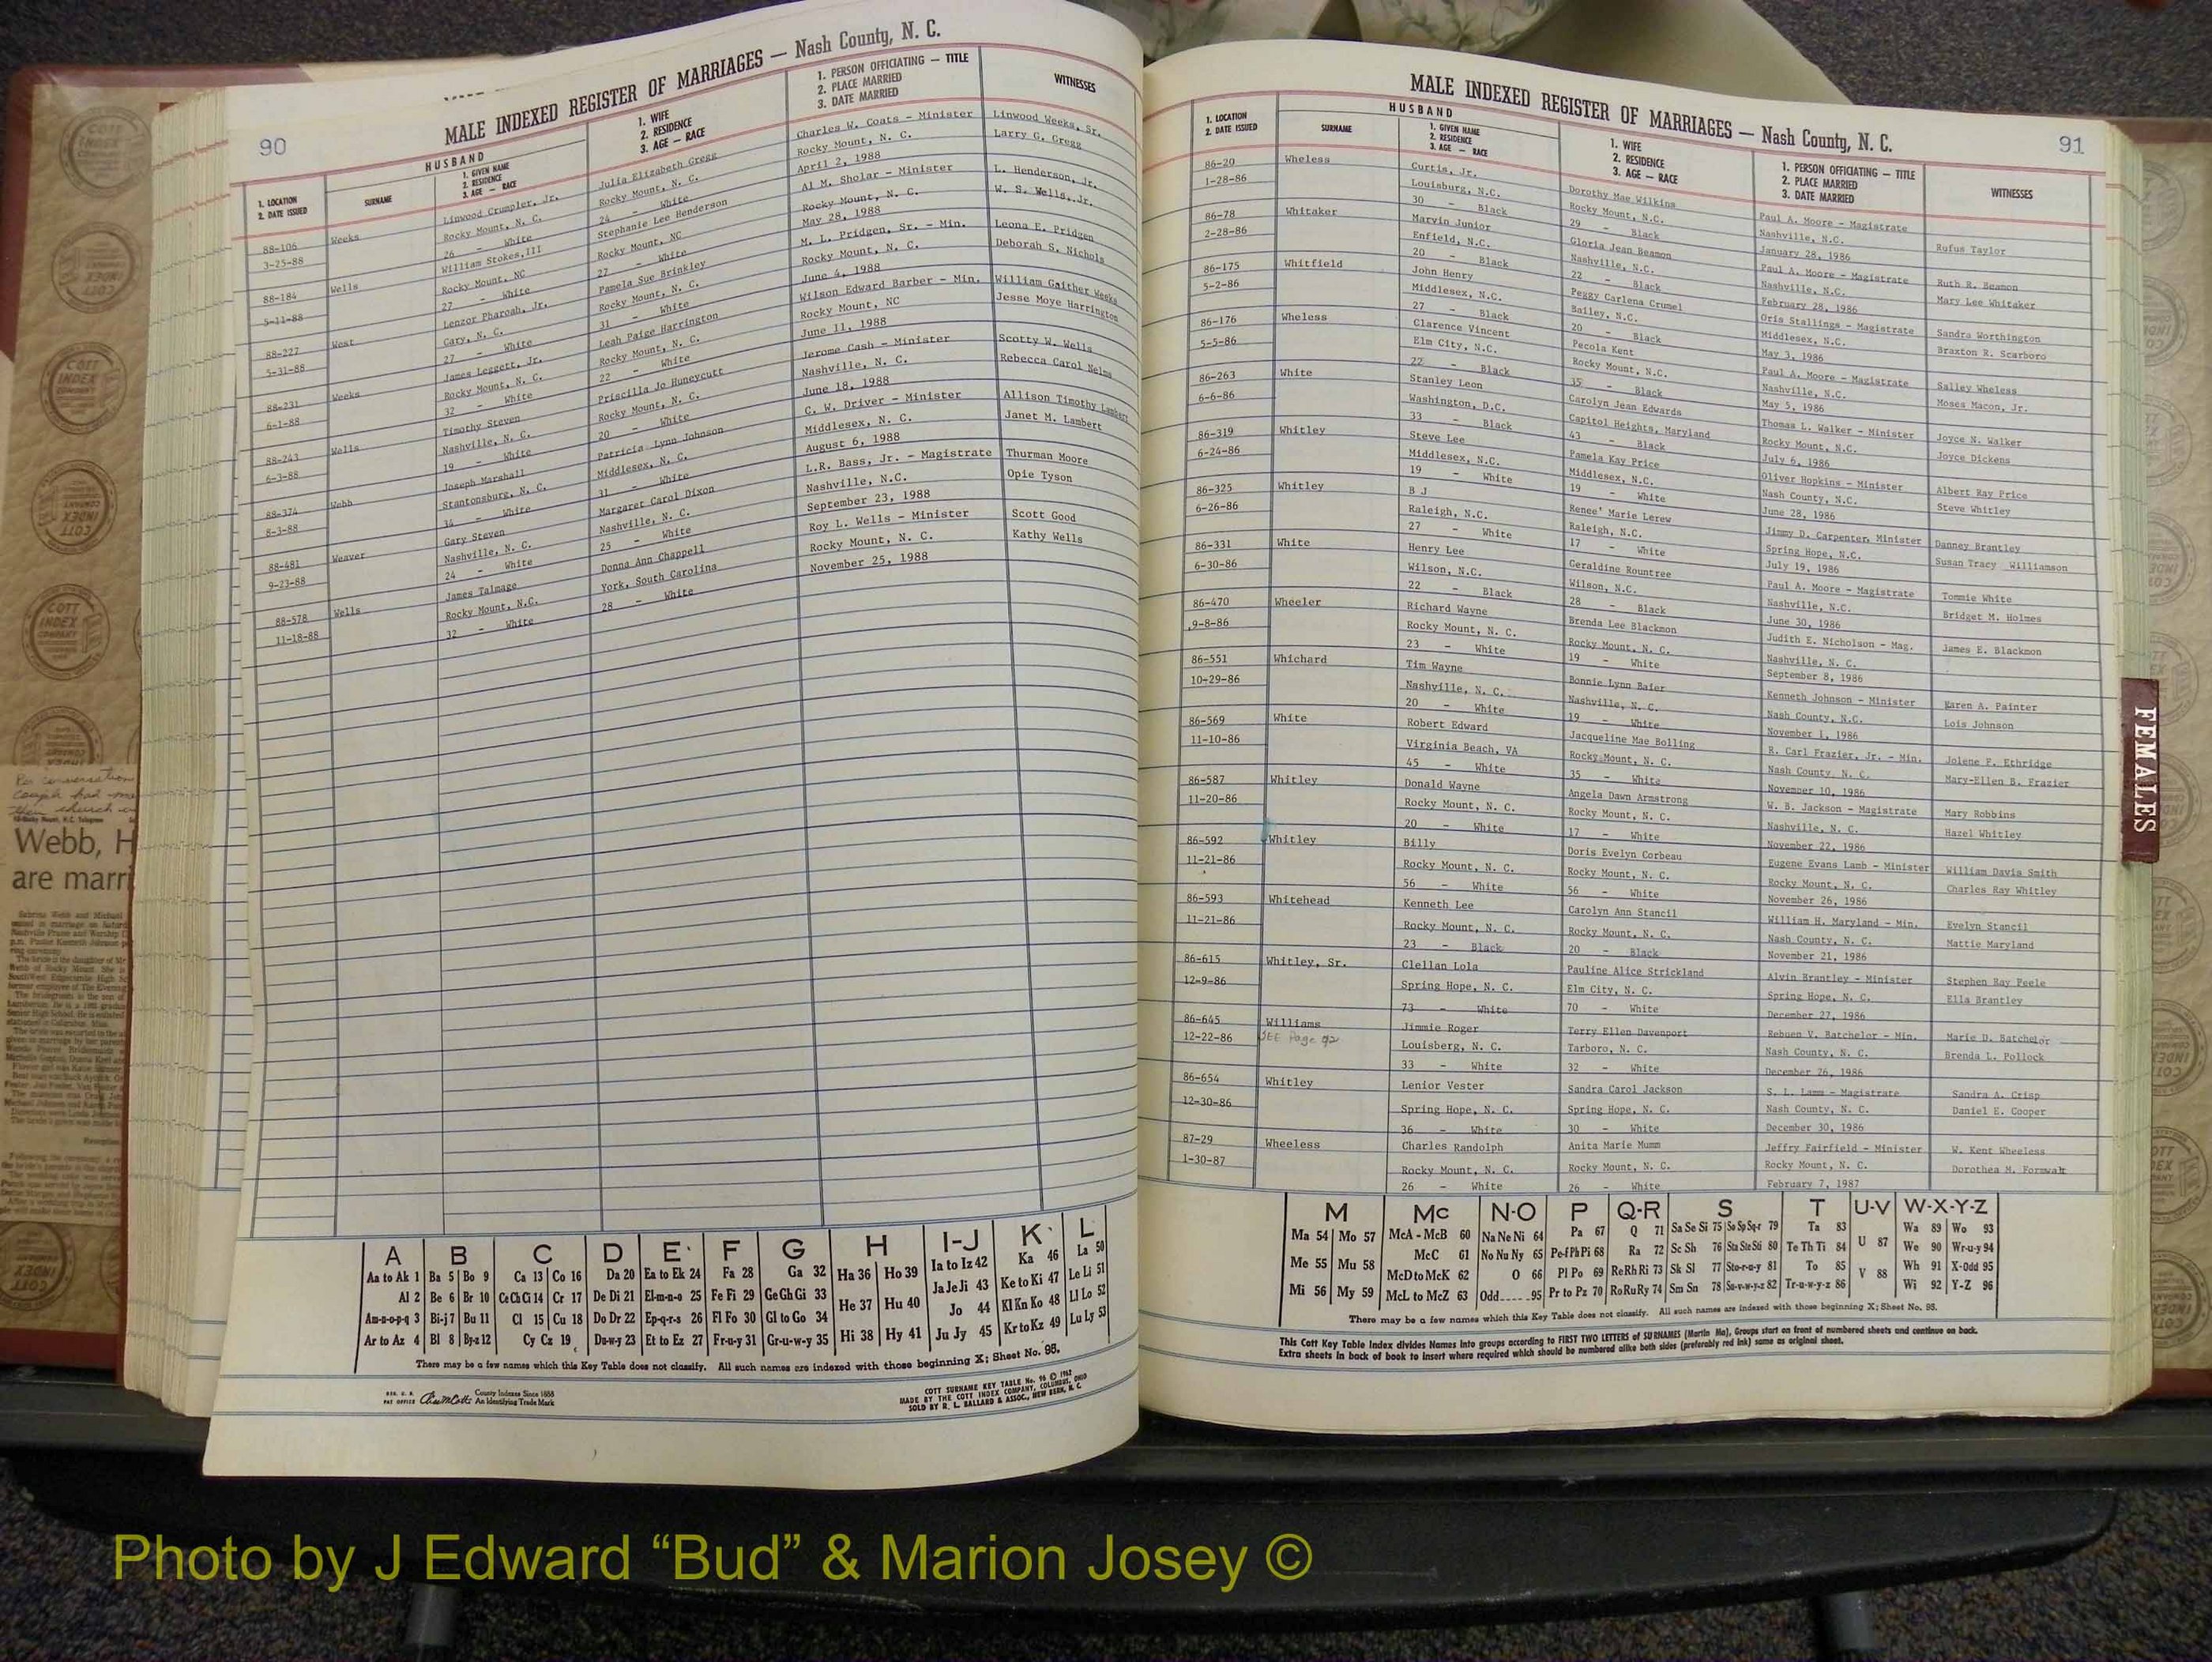 MALE INDEXED REGISTER OF MARRIAGES — Nash County, N. C.
90
1. LOCATION
2. DATE ISSUED
HUSBAND
SURNAME
1. GIVEN NAME
2. RESIDENCE
3. AGE — RACE
1. WIFE
2. RESIDENCE
3. AGE — RACE
1. PERSON OFFICIATING — TITLE
2. PLACE MARRIED
3. DATE MARRIED
WITNESSES
88-106 Weeks Linwood Crumpler, Jr. Julia Elizabeth Gregg Charles W. Coats - Minister Linwood Weeks, Sr.
3-25-88 Rocky Mount, N. C. Rocky Mount, N. C. Rocky Mount, N. C. Larry G. Gregg
26 - White 24 - White April 2, 1988
88-184 Wells William Stokes,III Stephanie Lee Henderson Al M. Sholar - Minister L. Henderson, Jr.
5-11-88 Rocky Mount, NC Rocky Mount, NC Rocky Mount, N. C. W. S. Wells, Jr.
27 - White 27 - White May 28, 1988
88-227 West Lenzor Pharoah, Jr. Pamela Sue Brinkley M. L. Pridgen, Sr. - Min. Leona E. Pridgen
5-31-88 Cary, N. C. Rocky Mount, N. C. Rocky Mount, N. C. Deborah S. Nichols
27 - White 31 - White June 4, 1988
88-231 Weeks James Leggett, Jr. Leah Paige Harrington Wilson Edward Barber - Min. William Gaither Weeks
6-1-88 Rocky Mount, N. C. Rocky Mount, N. C. Rocky Mount, NC Jesse Moye Harrington
32 - White 22 - White June 11, 1988
88-243 Wells Timothy Steven Priscilla Jo Huneycutt Jerome Cash - Minister Scotty W. Wells
6-3-88 Nashville, N. C. Rocky Mount, N. C. Nashville, N. C. Rebecca Carol Nelms
19 - White 20 - White June 18, 1988
88-374 Webb Joseph Marshall Patricia Lynn Johnson C. W. Driver - Minister Allison Timothy Lambert
8-3-88 Stantonsburg, N. C. Middlesex, N. C. Middlesex, N. C. Janet M. Lambert
34 - White 31 - White August 6, 1988
88-481 Weaver Gary Steven Margaret Carol Dixon L.R. Bass, Jr. - Magistrate Thurman Moore
9-23-88 Nashville, N. C. Nashville, N. C. Nashville, N.C. Opie Tyson
24 - White 25 - White September 23, 1988
88-578 Wells James Talmage Donna Ann Chappell Roy L. Wells - Minister Scott Good
11-18-88 Rocky Mount, N.C. York, South Carolina Rocky Mount, N. C. Kathy Wells
32 - White 28 - White November 25, 1988
A B C D E F G H I-J K L
Aa to Ak 1 Ba 5 Bo 9 Ca 13 Co 16 Da 20 Ea to Ek 24 Fa 28 Ga 32 Ha 36 Ho 39 Ia to Iz 42 Ka 46 La 50
Al 2 Be 6 Br 10 Ce Ch Ci 14 Cr 17 De Di 21 El-m-n-o 25 Fe Fi 29 Ge Gh Gi 33 He 37 Hu 40 Ja Je Ji 43 Ke to Ki 47 Le Li 51
Am-n-o-p-q 3 Bi-j 7 Bu 11 Cl 15 Cu 18 Do Dr 22 Ep-q-r-s 26 Fl Fo 30 Gl to Go 34 Jo 44 Kl Kn Ko 48 Ll Lo 52
Ar to Az 4 Bl 8 By-z 12 Cy Cz 19 Du-w-y 23 Et to Ez 27 Fr-u-y 31 Gr-u-w-y 35 Hi 38 Hy 41 Ju Jy 45 Kr to Kz 49 Lu Ly 53
There may be a few names which this Key Table does not classify. All such names are indexed with those beginning X; Sheet No. 95.
County Indexes Since 1888
An Identifying Trade Mark
COTT SURNAME KEY TABLE No. 96 © 1962
MADE BY THE COTT INDEX COMPANY, COLUMBUS, OHIO
SOLD BY R. L. BALLARD & ASSOC., NEW BERN, N. C.
MALE INDEXED REGISTER OF MARRIAGES — Nash County, N. C.
91
1. LOCATION
2. DATE ISSUED
HUSBAND
SURNAME
1. GIVEN NAME
2. RESIDENCE
3. AGE — RACE
1. WIFE
2. RESIDENCE
3. AGE — RACE
1. PERSON OFFICIATING — TITLE
2. PLACE MARRIED
3. DATE MARRIED
WITNESSES
86-20 Wheless Curtis, Jr. Dorothy Mae Wilkins Paul A. Moore - Magistrate Rufus Taylor
1-28-86 Louisburg, N.C. Rocky Mount, N.C. Nashville, N.C.
30 - Black 29 - Black January 28, 1986
86-78 Whitaker Marvin Junior Gloria Jean Beamon Paul A. Moore - Magistrate Ruth R. Beamon
2-28-86 Enfield, N.C. Nashville, N.C. Nashville, N.C. Mary Lee Whitaker
20 - Black 22 - Black February 28, 1986
86-175 Whitfield John Henry Peggy Carlena Crumel Oris Stallings - Magistrate Sandra Worthington
5-2-86 Middlesex, N.C. Bailey, N.C. Middlesex, N.C. Braxton R. Scarboro
27 - Black 20 - Black May 3, 1986
86-176 Wheless Clarence Vincent Pecola Kent Paul A. Moore - Magistrate Salley Wheless
5-5-86 Elm City, N.C. Rocky Mount, N.C. Nashville, N.C. Moses Macon, Jr.
22 - Black 35 - Black May 5, 1986
86-263 White Stanley Leon Carolyn Jean Edwards Thomas L. Walker - Minister Joyce N. Walker
6-6-86 Washington, D.C. Capitol Heights, Maryland Rocky Mount, N.C. Joyce Dickens
33 - Black 43 - Black July 6, 1986
86-319 Whitley Steve Lee Pamela Kay Price Oliver Hopkins - Minister Albert Ray Price
6-24-86 Middlesex, N.C. Middlesex, N.C. Nash County, N.C. Steve Whitley
19 - White 19 - White June 28, 1986
86-325 Whitley B J Renee' Marie Lerew Jimmy D. Carpenter, Minister Danney Brantley
6-26-86 Raleigh, N.C. Raleigh, N.C. Spring Hope, N.C. Susan Tracy Williamson
27 - White 17 - White July 19, 1986
86-331 White Henry Lee Geraldine Rountree Paul A. Moore - Magistrate Tommie White
6-30-86 Wilson, N.C. Wilson, N.C. Nashville, N.C. Bridget M. Holmes
22 - Black 28 - Black June 30, 1986
86-470 Wheeler Richard Wayne Brenda Lee Blackmon Judith E. Nicholson - Mag. James E. Blackmon
9-8-86 Rocky Mount, N. C. Rocky Mount, N. C. Nashville, N. C.
23 - White 19 - White September 8, 1986
86-551 Whichard Tim Wayne Bonnie Lynn Baier Kenneth Johnson - Minister Karen A. Painter
10-29-86 Nashville, N. C. Nashville, N. C. Nash County, N.C. Lois Johnson
20 - White 19 - White November 1, 1986
86-569 White Robert Edward Jacqueline Mae Bolling R. Carl Frazier, Jr. - Min. Jolene F. Ethridge
11-10-86 Virginia Beach, VA Rocky Mount, N. C. Nash County N. C. Mary-Ellen B. Frazier
45 - White 35 - White November 10, 1986
86-587 Whitley Donald Wayne Angela Dawn Armstrong W. B. Jackson - Magistrate Mary Robbins
11-20-86 Rocky Mount, N. C. Rocky Mount, N. C. Nashville, N. C. Hazel Whitley
20 - White 17 - White November 22, 1986
86-592 Whitley Billy Doris Evelyn Corbeau Eugene Evans Lamb - Minister William Davis Smith
11-21-86 Rocky Mount, N. C. Rocky Mount, N. C. Rocky Mount, N. C. Charles Ray Whitley
56 - White 56 - White November 26, 1986
86-593 Whitehead Kenneth Lee Carolyn Ann Stancil William H. Maryland - Min. Evelyn Stancil
11-21-86 Rocky Mount, N. C. Rocky Mount, N. C. Nash County, N. C. Mattie Maryland
23 - Black 20 - Black November 21, 1986
86-615 Whitley, Sr. Clellan Lola Pauline Alice Strickland Alvin Brantley - Minister Stephen Ray Peele
12-9-86 Spring Hope, N. C. Elm City, N. C. Spring Hope, N. C. Ella Brantley
73 - White 70 - White December 27, 1986
86-645 Williams Jimmie Roger Terry Ellen Davenport Rebuen V. Batchelor - Min. Marie D. Batchelor
12-22-86 SEE Page 92 Louisberg, N. C. Tarboro, N. C. Nash County, N. C. Brenda L. Pollock
33 - White 32 - White December 26, 1986
86-654 Whitley Lenior Vester Sandra Carol Jackson S. L. Lamm - Magistrate Sandra A. Crisp
12-30-86 Spring Hope, N. C. Spring Hope, N. C. Nash County, N. C. Daniel E. Cooper
36 - White 30 - White December 30, 1986
87-29 Wheeless Charles Randolph Anita Marie Mumm Jeffry Fairfield - Minister W. Kent Wheeless
1-30-87 Rocky Mount, N. C. Rocky Mount, N. C. Rocky Mount, N. C. Dorothea M. Formwalt
26 - White 26 - White February 7, 1987
M Mc N-O P Q-R S T U-V W-X-Y-Z
Ma 54 Mo 57 McA - McB 60 Na Ne Ni 64 Pa 67 Q 71 Sa Se Si 75 So Sp Sq-r 79 Ta 83 U 87 Wa 89 Wo 93
Me 55 Mu 58 McC 61 No Nu Ny 65 Pe-f Ph Pi 68 Ra 72 Sc Sh 76 Sta Ste Sti 80 Te Th Ti 84 We 90 Wr-u-y 94
McD to McK 62 O 66 Pl Po 69 Re Rh Ri 73 Sk Sl 77 Sto-r-u-y 81 To 85 V 88 Wh 91 X-Odd 95
Mi 56 My 59 McL to McZ 63 Odd 95 Pr to Pz 70 Ro Ru Ry 74 Sm Sn 78 Su-v-w-y-z 82 Tr-u-w-y-z 86 Wi 92 Y-Z 96
There may be a few names which this Key Table does not classify. All such names are indexed with those beginning X; Sheet No. 95.
This Cott Key Table Index divides Names into groups according to FIRST TWO LETTERS of SURNAMES (Martin Ma), Groups start on front of numbered sheets and continue on back.
Extra sheets in back of book to insert where required which should be numbered alike both sides (preferably red ink) same as original sheet.
FEMALES
COTT
INDEX
COMPANY
Webb, H
are marri
Photo by J Edward “Bud” & Marion Josey ©